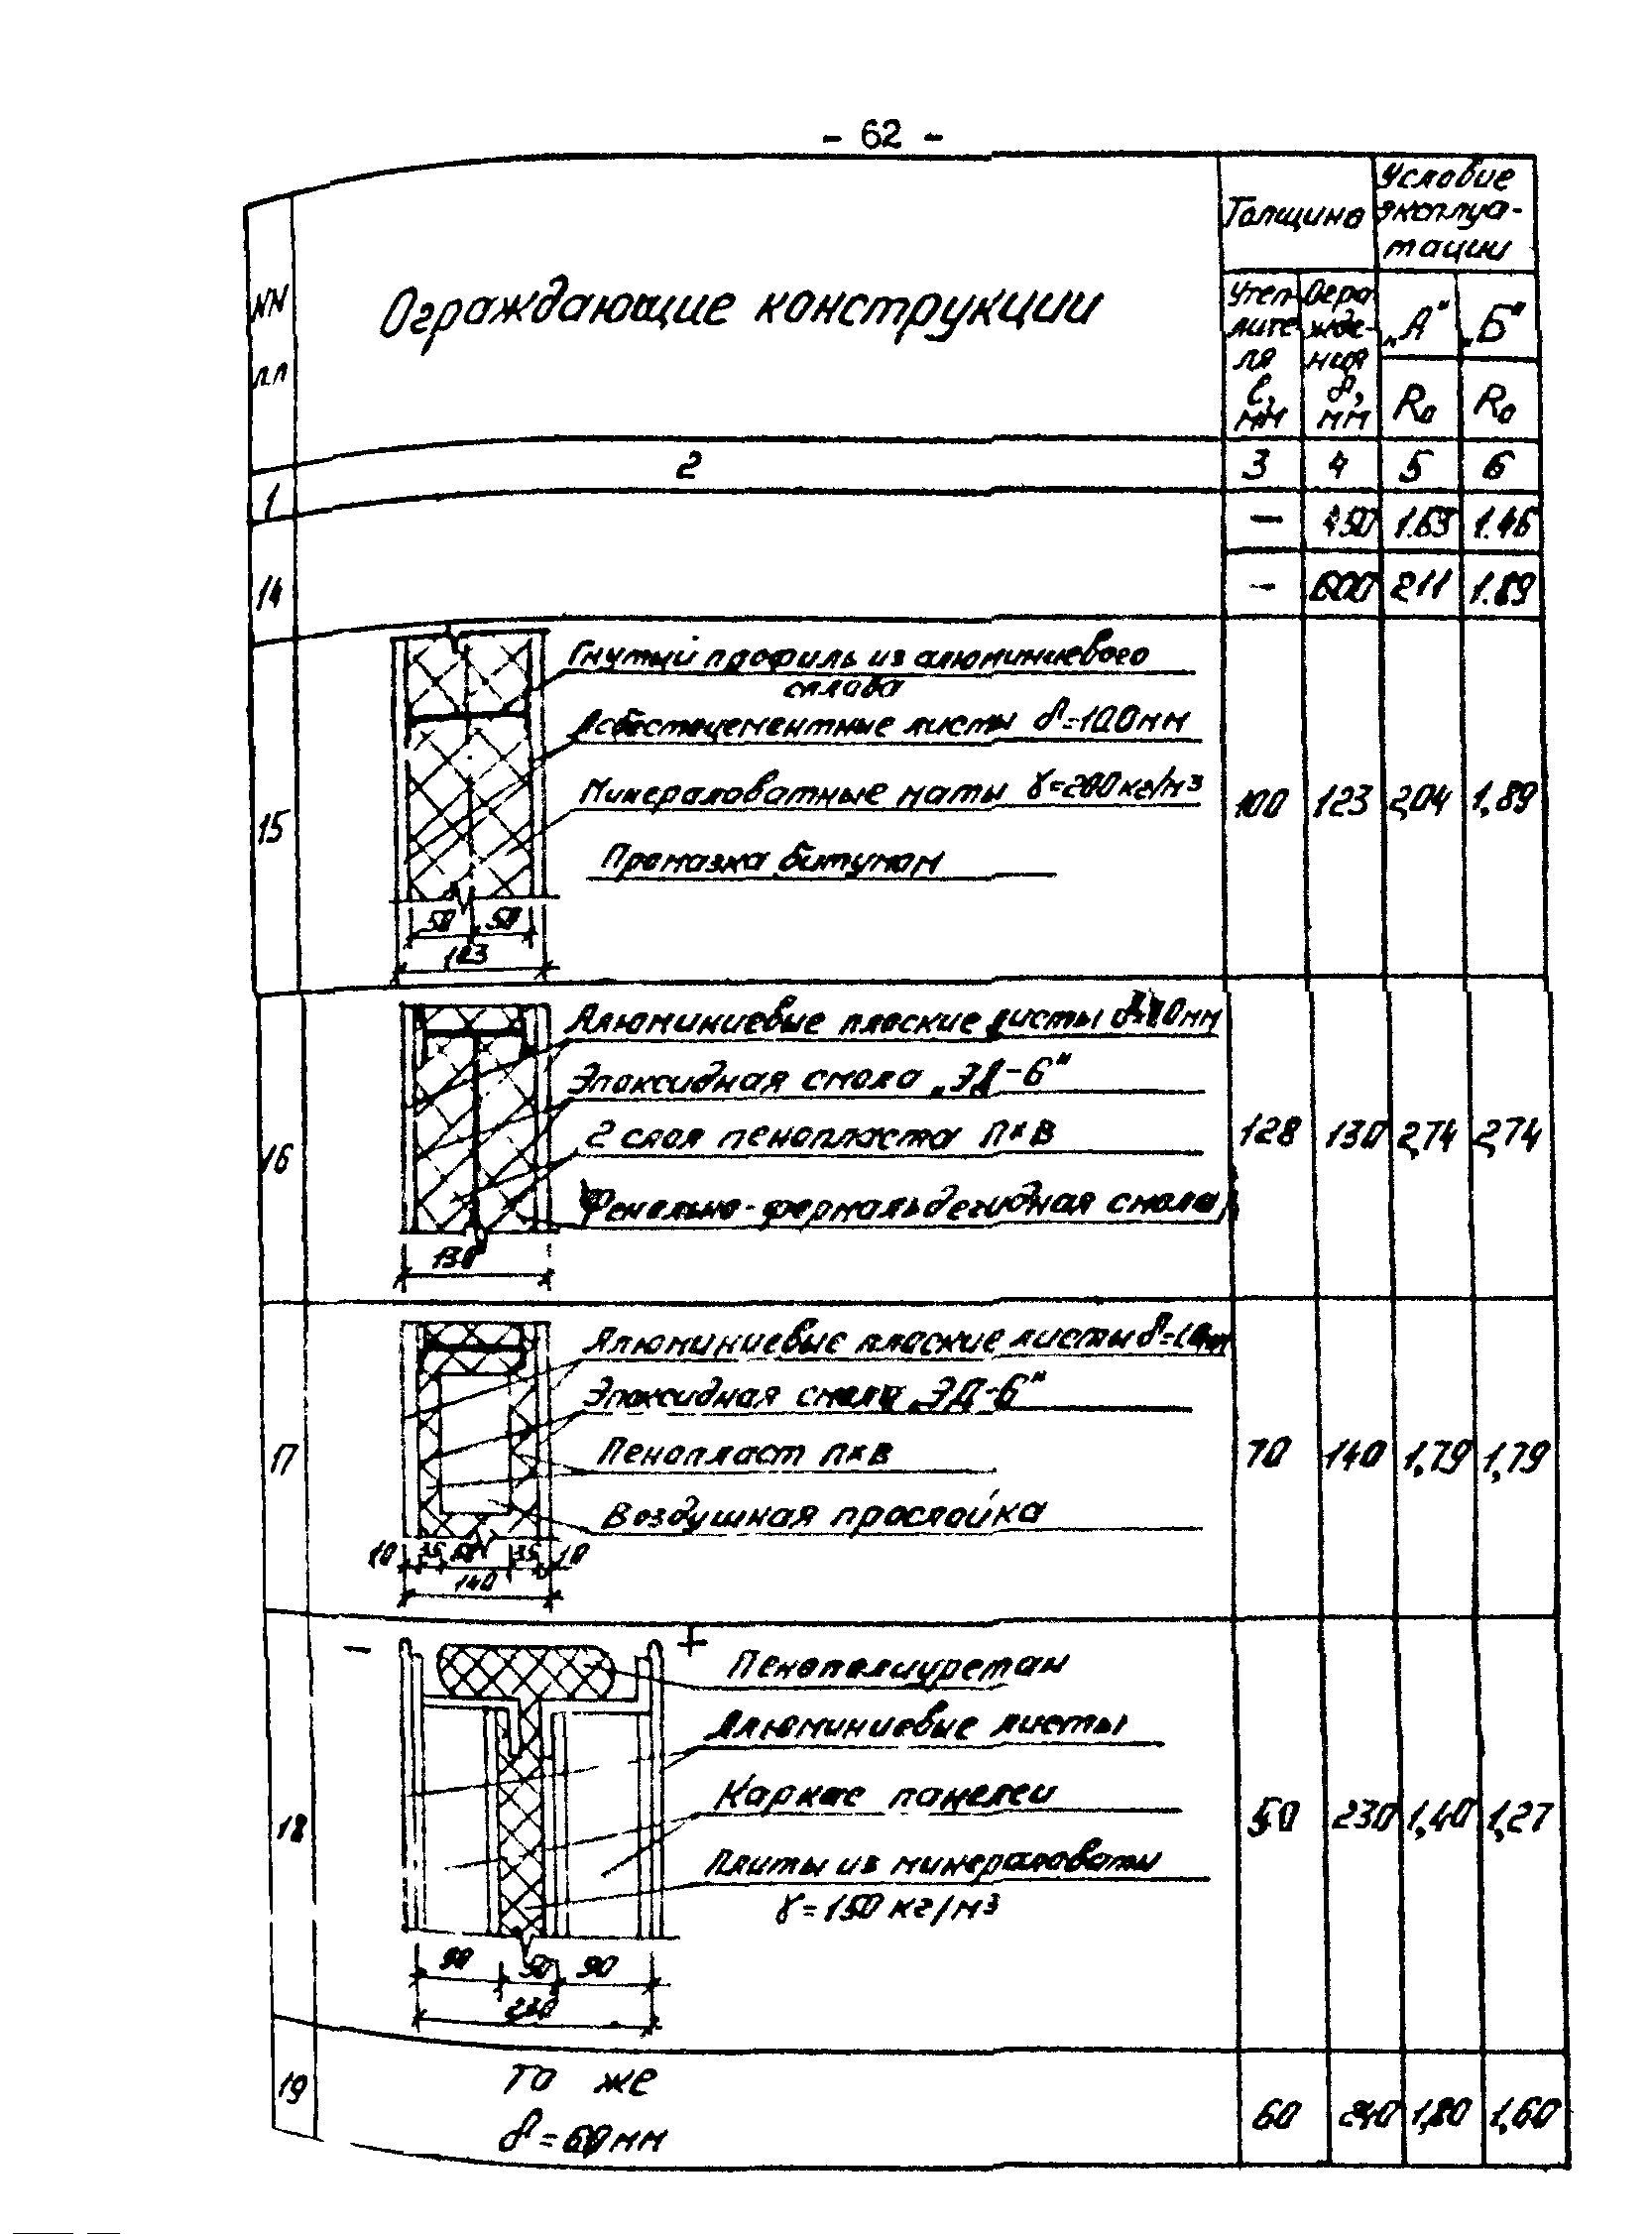 - 62 -
NN
пп
Ограждающие конструкции
Толщина
Условие
эксплуа-
тации
Утеп-
лите
ля
ℓ,
мм
Огра
жде-
ния
δ,
мм
„А"
„Б"
R₀
R₀
1 2 3 4 5 6
— 1.63 1.46
14 — 600 2.11 1.89
15
Гнутый профиль из алюминиевого
сплава
Асбестоцементные листы δ=10.0мм
Минераловатные маты γ=200кг/м³
Промазка битумом
50 50
123
100 123 2,04 1,89
16
Алюминиевые плоские листы
Эпоксидная смола „ЭД-6"
2 слоя пенопласта ПХВ
Фенольно-формальдегидная смола
130
128 130 2,74 2,74
17
Алюминиевые плоские листы
Эпоксидная смола „ЭД-6"
Пенопласт ПХВ
Воздушная прослойка
10 35 35 10
140
70 140 1,79 1,79
18
— +
Пенополиуретан
Алюминиевые листы
Каркас панелей
Плиты из минераловаты
γ=150 кг/м³
90 50 90
230
50 230 1,40 1,27
19
то же
δ=60мм
60 240 1,80 1,60